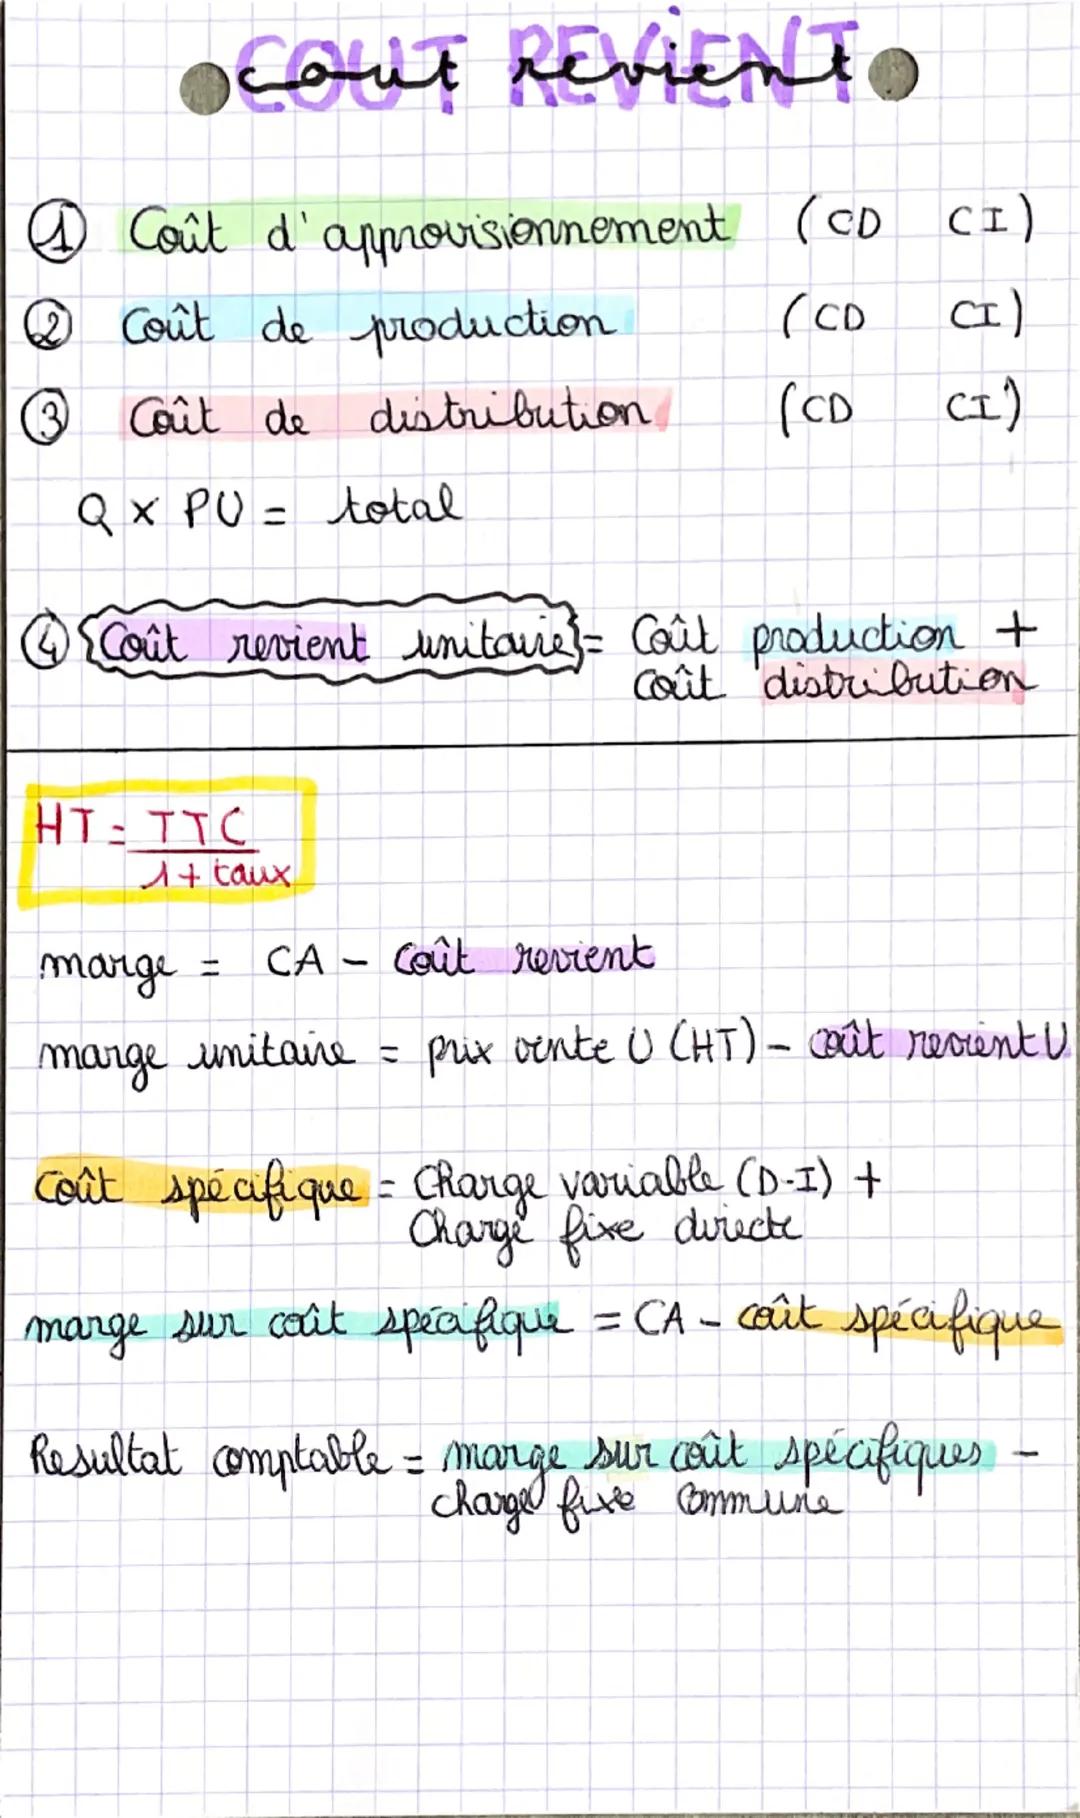 COUT REVIENT
cout revient
1 Coût d'approvisionnement (CD CI)
2 Coût de production (CD CI)
3 Coût de distribution (CD CI)
Q x PU = total
4 Coût revient unitaire = Coût production +
Coût distribution
HT = TTC
1 + taux
marge = CA - Coût revient
marge unitaire = prix vente U (HT) - coût revient U
Coût spécifique = Charge variable (D-I) +
Charge fixe directe
marge sur coût spécifique = CA - coût spécifique
Resultat comptable = marge sur coût spécifiques -
charge fixe commune